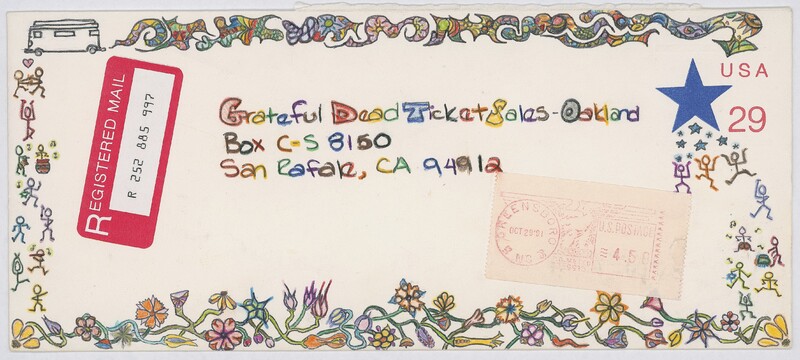 REGISTERED MAIL
R 252 885 997
Grateful Dead Ticket Sales-Oakland
Box C-S 8150
San Rafale, CA 94912
USA
29
GREENSBORO
OCT 28'91
NC
U.S. POSTAGE
4.50